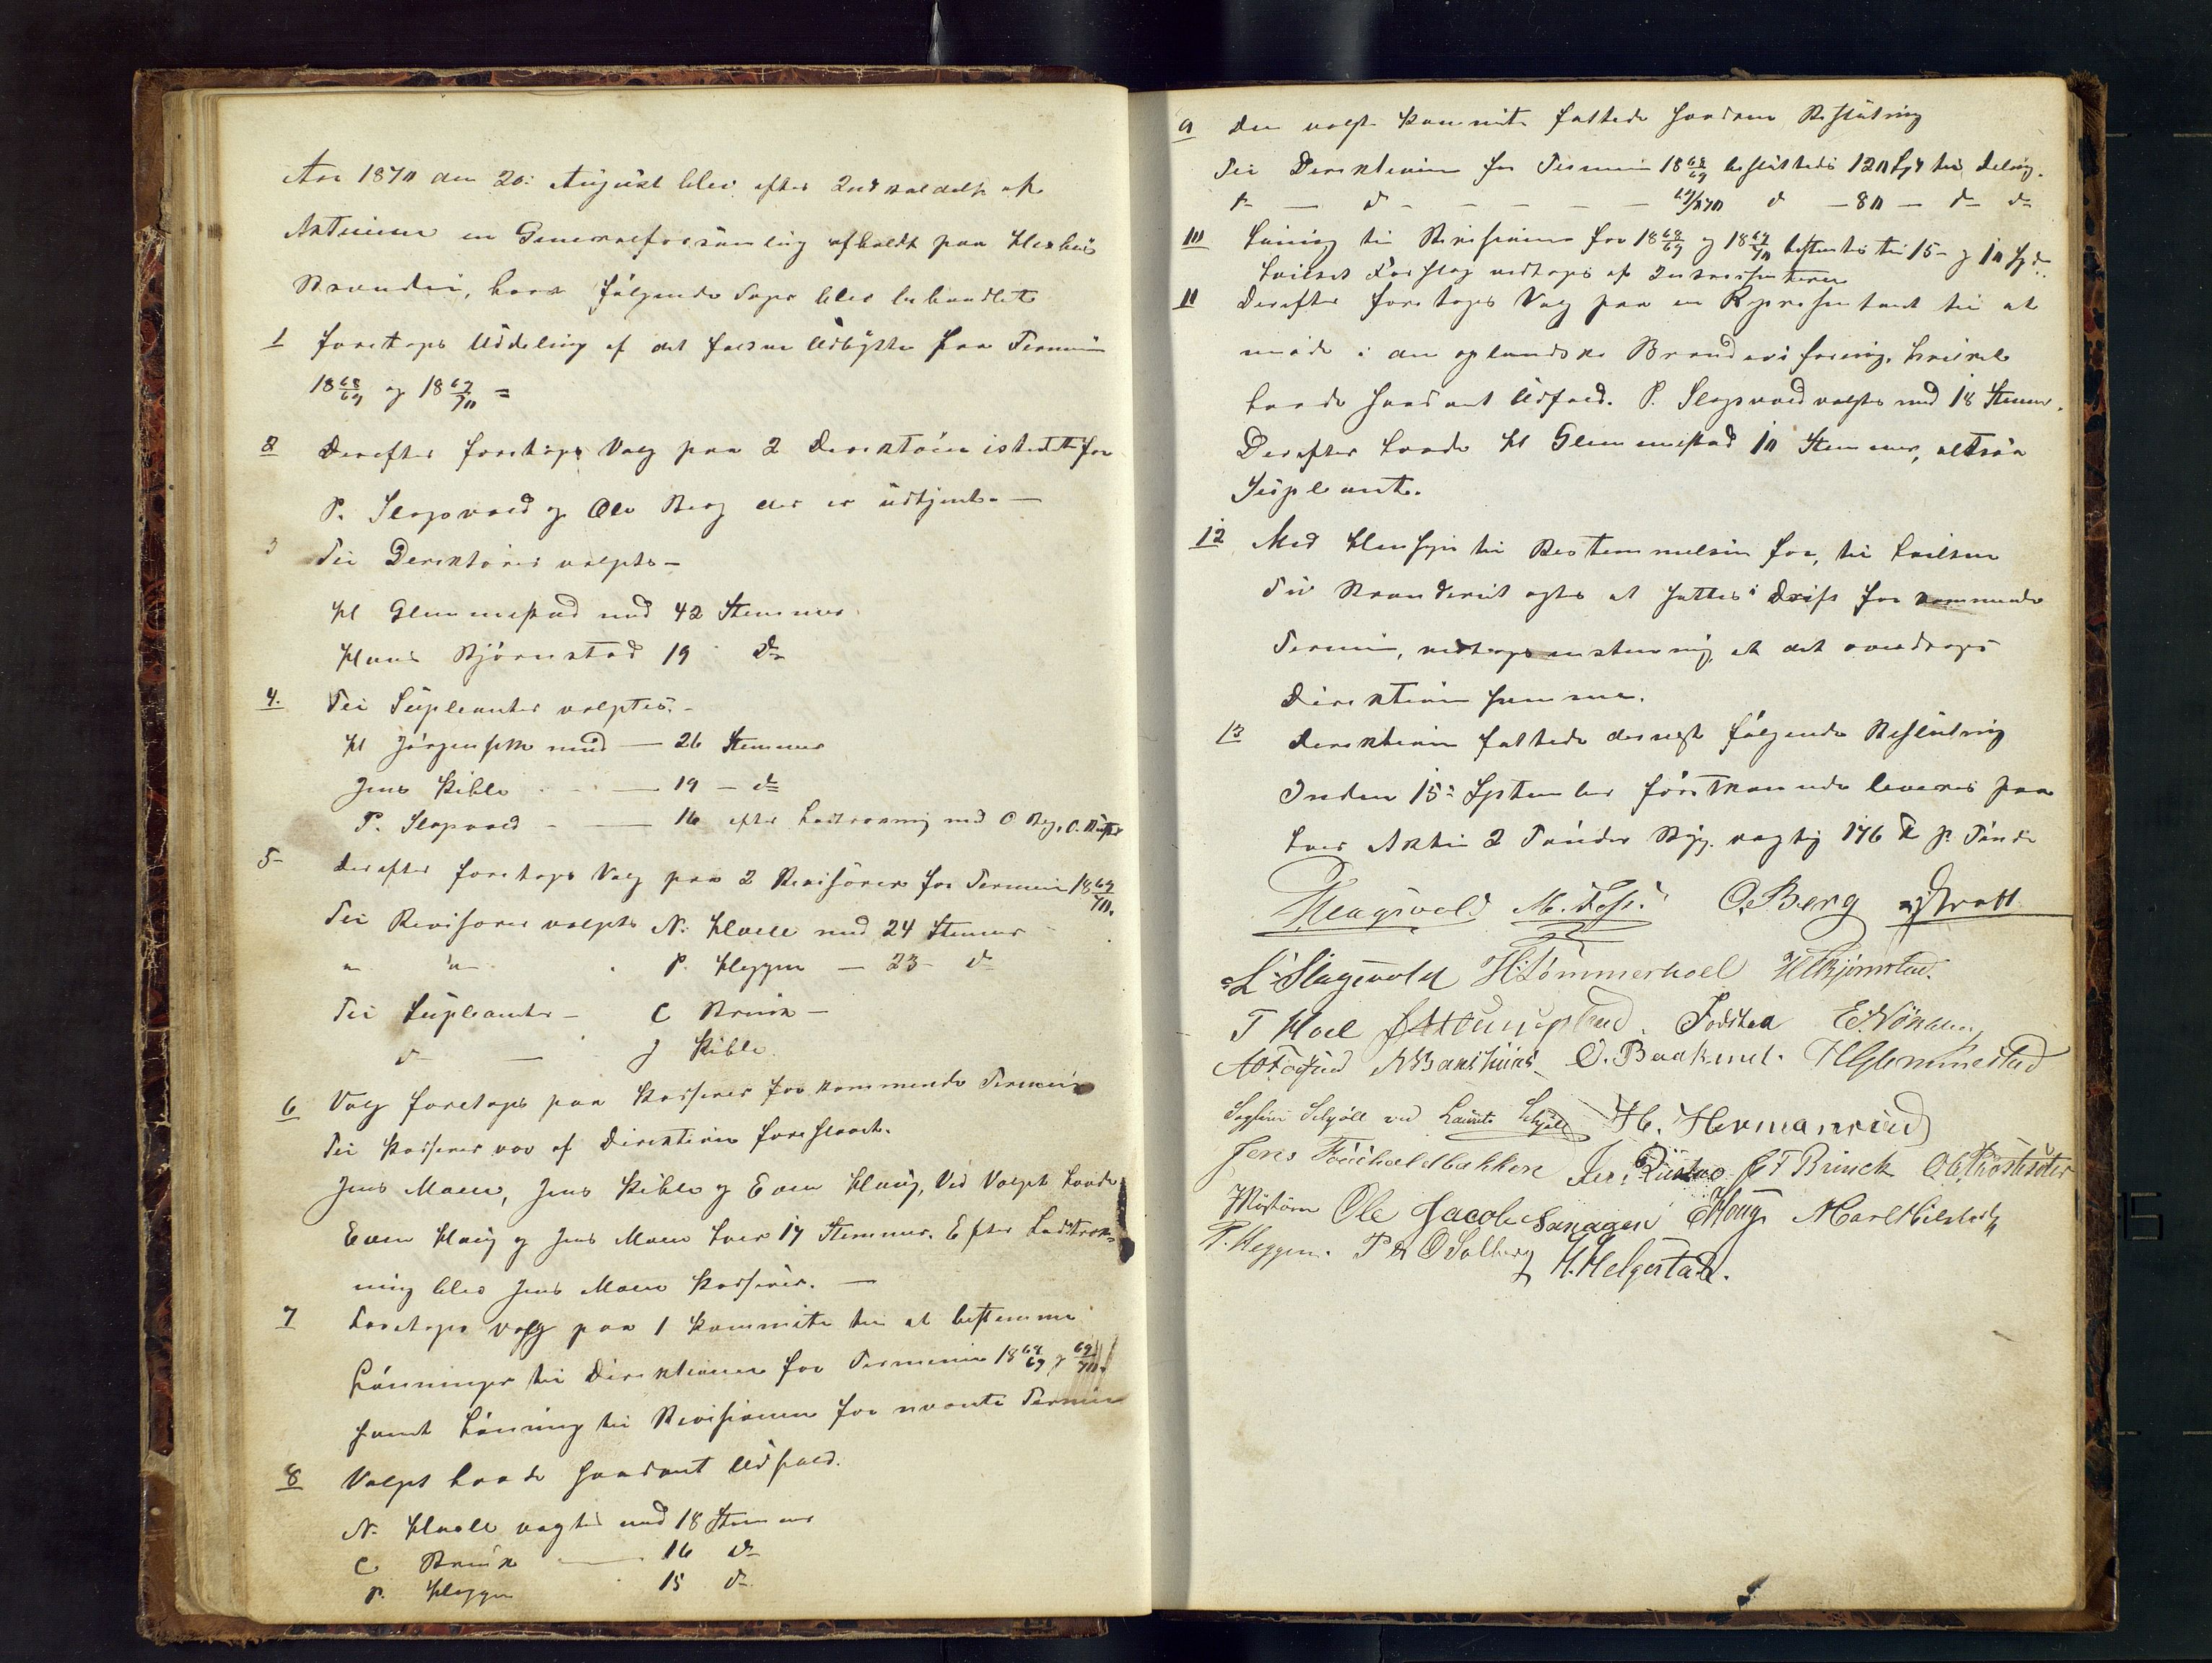 Aar 1870 den 20: August blev efter Indkaldelse af
Aktieeiere en Generalforsamling afholdt paa Heshuus
Brænderi, hvor følgende Sager blev behandlet
1 foretoges Uddeling af det faldne Udbytte fra Termin
18 68/69 og 18 69/70 =
2 Derefter foretoges Valg paa 2 Derektører istedetfor
P. Slagsvold og Ole Berg der er udtjent. —
3 Til Derektører valgtes —
H Glemmestad med 42 Stemmer
Hans Bjørnstad 19 do
4. Til Supleanter valgtes. —
H Jørgensen med — 26 Stemmer
Jens Kihle — 19 — do
P. Slagsvold — 16 efter Lodtrækning med O Berg, O.
5 derefter foretoges Valg paa 2 Revisorer for Termin 18 69/70.
Til Revisorer valgtes N. Hoell med 24 Stemmer
" " P. Heggen — 23 — do
Til Supleanter — C Brinck —
do — J Kihle
6 Valg foretoges paa Kasserer for kommende Termin
Til Kasserer var af Direktionen foreslaaet.
Jens Moen, Jens Kihle og Even Haug, Ved Valget havde
Even Haug og Jens Moen hver 17 Stemmer. Efter Lodtræk-
ning blev Jens Moen Kasserer. —
7 Foretoges valg paa 1 Kommite til at bestemme
Lønninger til Direktionen for Terminen 18 68/69 og 69/70.
samt Lønning til Revisionen for nævnte Termin
8 Valget havde saadant Udfald.
N. Hoell valgtes med 18 Stemmer
C Brinck — 16 do
P. Heggen 15 do
9 Den valgte Kommite fattede saadan Beslutning
Til Derektionen for Termin 18 68/69 besluttedes 120 Spd til deling.
do — do — — — — 69/1870 do — 80 — do do
10 Lønning til Revisionen for 18 68/69 og 18 69/70 bestemtes til 15 — og 10 Spd.
hvilket Forslag vedtoges af Interessenterne
11 Derefter foretoges Valg paa en Representant til at
møde i den oplandske Brænderiforening, hvilket
havde saadant Udfald. P. Slagsvold valgtes med 18 Stemer.
Derefter havde H Glemmestad 10 Stemmer, altsaa
Supleant.
12 Med Hensyn til Bestemmelsen for, til hvilken
Tid Brænderiet agtes at sættes i Drift for kommende
Termin, vedtoges enstemmig, at det overdrages
Direktionen samme.
13 Direktionen fattede dernæst følgende Beslutning
Inden 15de September førstkommende leveres paa
hver Aktie 2 Tønder Byg. vægtig 176 ℔ pr Tønde
P Slagsvold M. O. Berg
L Slagsvold H: Sømmerhoel H Bjørnstad.
T Hoel
O. Baakind. H Glemmestad
ved Laurits Schjøll H. Hermanrud
Jens C F Brinck
Ole Jacobs E Haug
P. Heggen. O Solberg H. Helgestad.